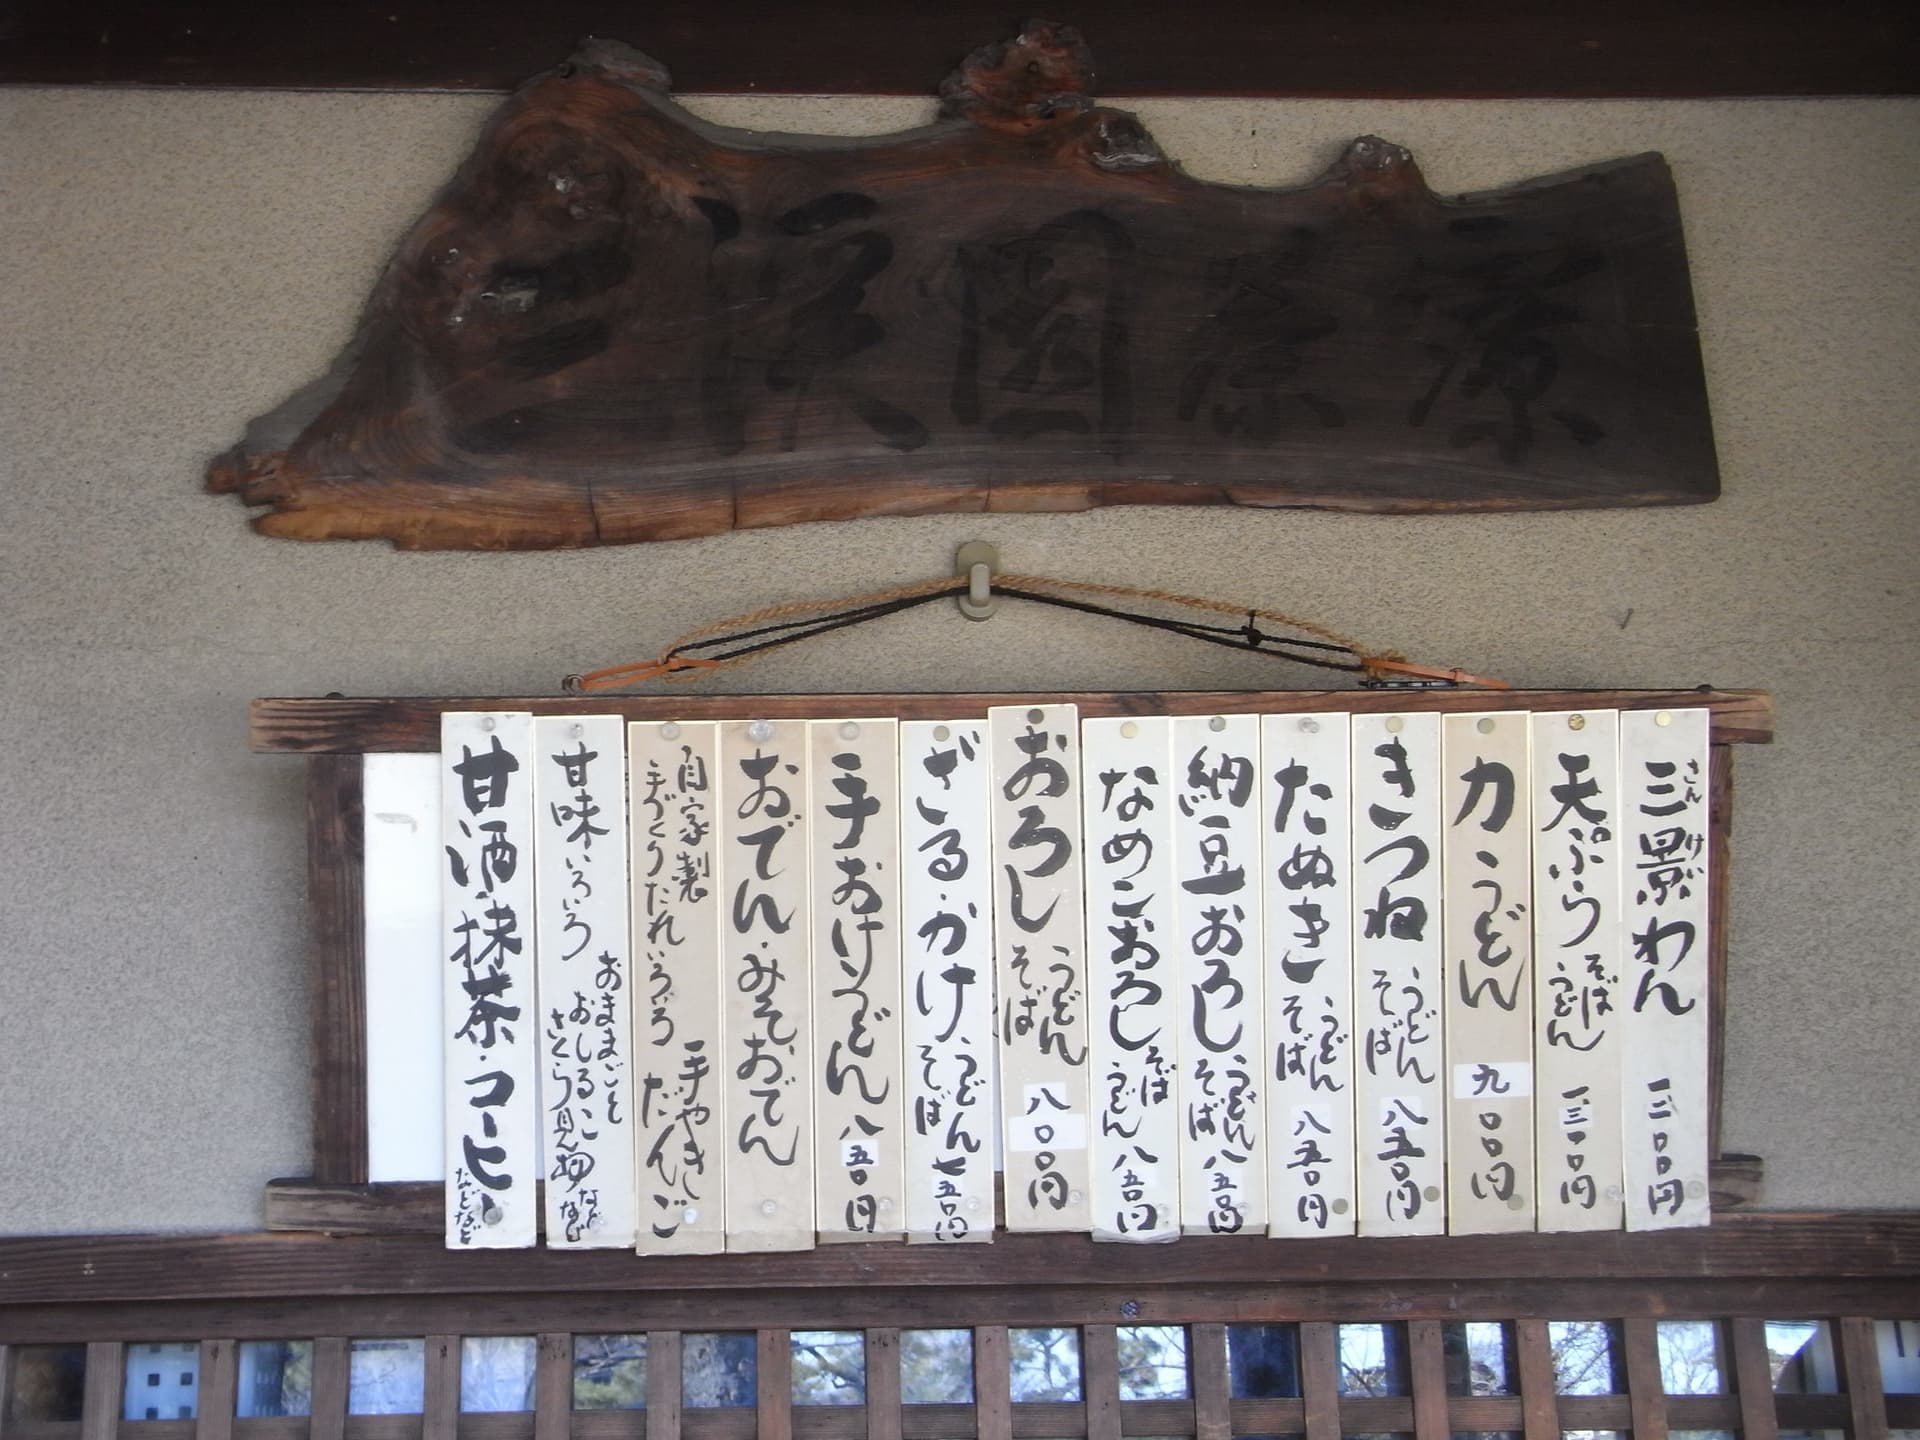 三渓園茶寮
三景わん 一二〇〇円
さんけい
天ぷら そば うどん 一三〇〇円
力うどん 九〇〇円
きつね うどん そば 八五〇円
たぬき うどん そば 八五〇円
納豆おろし うどん そば 八五〇円
なめこおろし そば うどん 八五〇円
おろし うどん そば 八〇〇円
ざる・かけ うどん そば 七五〇円
手おけうどん 八五〇円
おでん・みそおでん
自家製 手づくりたれいろいろ 手やきだんご
甘味いろいろ おままごと おしるこ さくら見物 などなど
甘酒・抹茶・コーヒー などなど